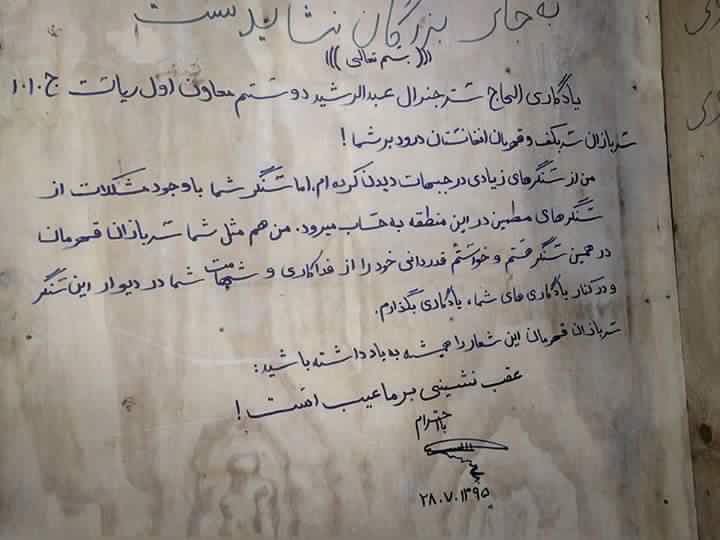 به جای بزرگان نشاید نشست
((( بسم تعالی )))
یادگاری الحاج سترجنرال عبدالرشید دوستم معاون اول ریاست ج.ا.ا
سربازان سربکف و قهرمان افغانستان درود بر شما !
من از سنگرهای زیادی در جبهات دیدن کرده ام، اما سنگر شما با وجود مشکلات از
سنگرهای مطمین در این منطقه به حساب میرود. من هم مثل شما سربازان قهرمان
در همین سنگر هستم و خواستم قدردانی خود را از فداکاری و شهامت شما در دیوار این سنگر
و در کنار یادگاری های شما، یادگاری بگذارم.
سربازان قهرمان این شعار را همیشه به یاد داشته باشید:
عقب نشینی بر ما عیب است !
با احترام
۲۸.۷.۱۳۹۵